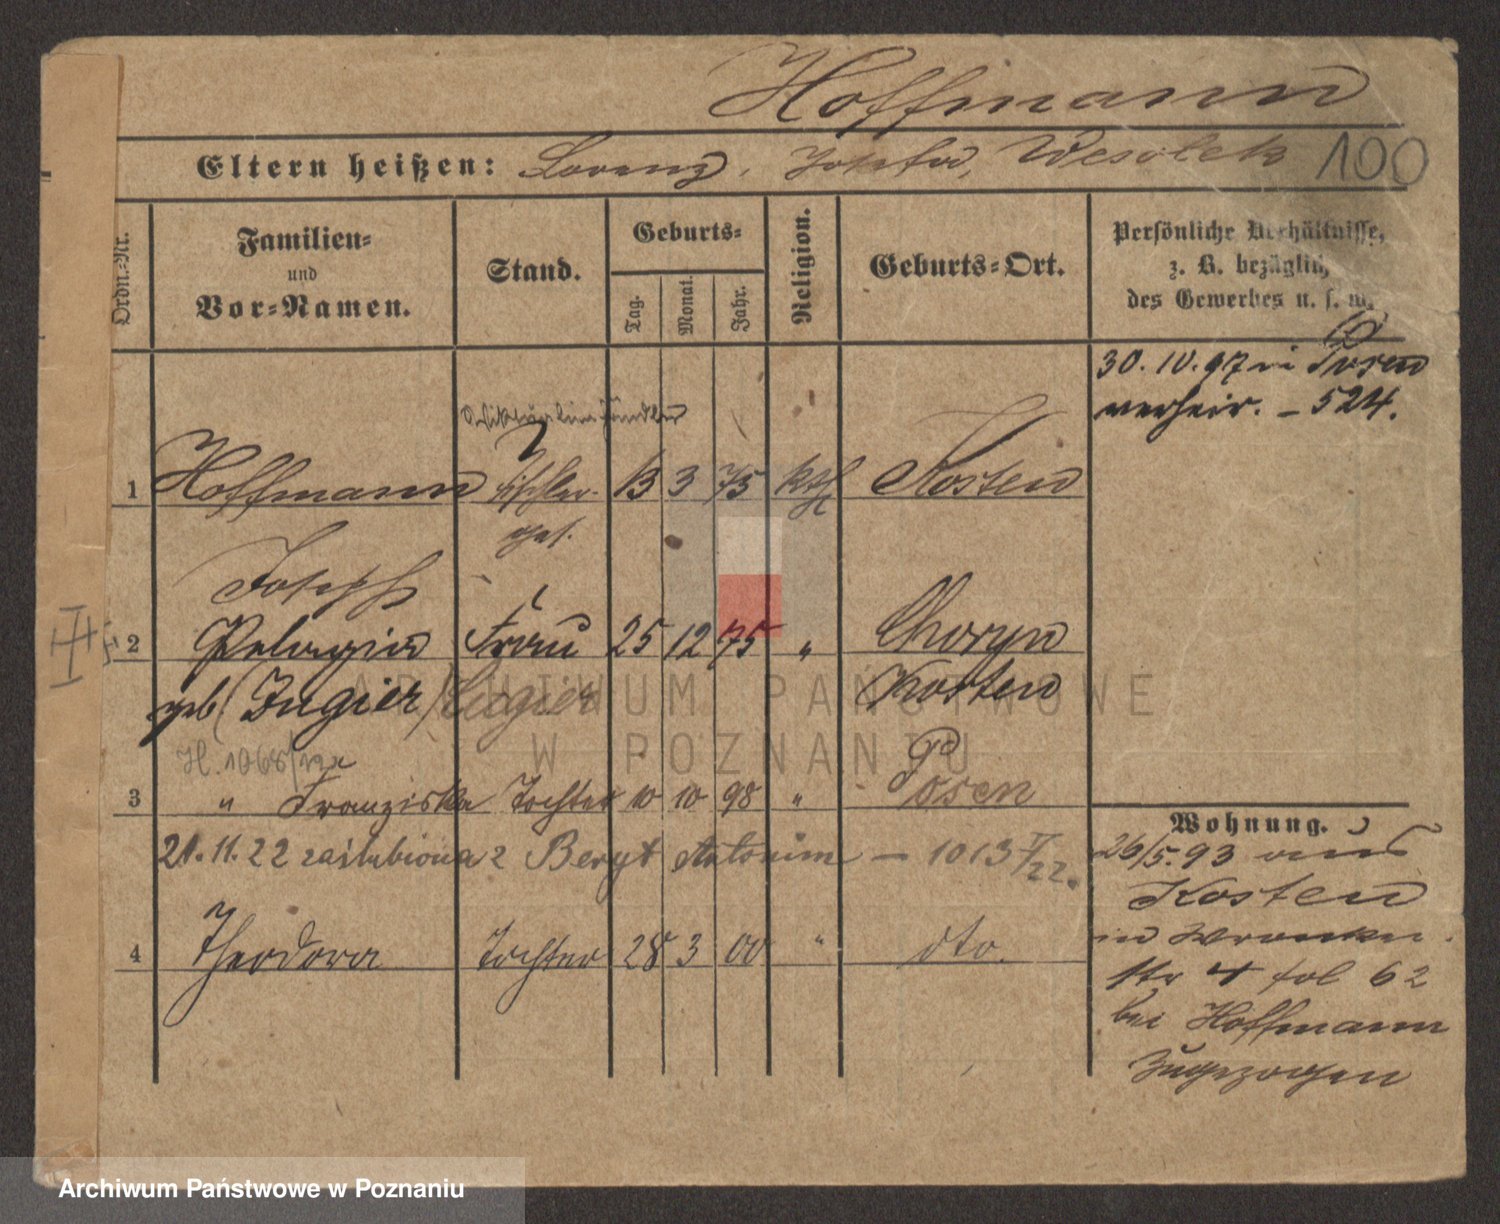 Hoffmann
Eltern heißen: Lorenz, Josefa, Wesolek 100
Ordn.-Nr.
Familien-
und
Vor-Namen.
Stand.
Geburts-
Tag.
Monat.
Jahr.
Religion.
Geburts-Ort.
Persönliche Verhältnisse,
z. B. bezüglich
des Gewerbes u. s. w.
30. 10. 97 in Posen
verheir. – 524.
1 Hoffmann Tischler- 13 3 75 kth Kosten
ges.
Joseph
2 Pelagia Frau 25 12 75 " Choryn
geb (Ingier) Kosten
H. 1068
3 " Franziska Tochter 10 10 98 " Posen
21. 11. 22 zaślubiona z Beryt Antonim – 1013 V/22.
4 Theodora Tochter 28 3 00 " dto.
Wohnung.
26/5.93 aus
Kosten
in Wronker
str 4 fol 62
bei Hoffmann
zugezogen
ARCHIWUM PAŃSTWOWE
W POZNANIU
Archiwum Państwowe w Poznaniu